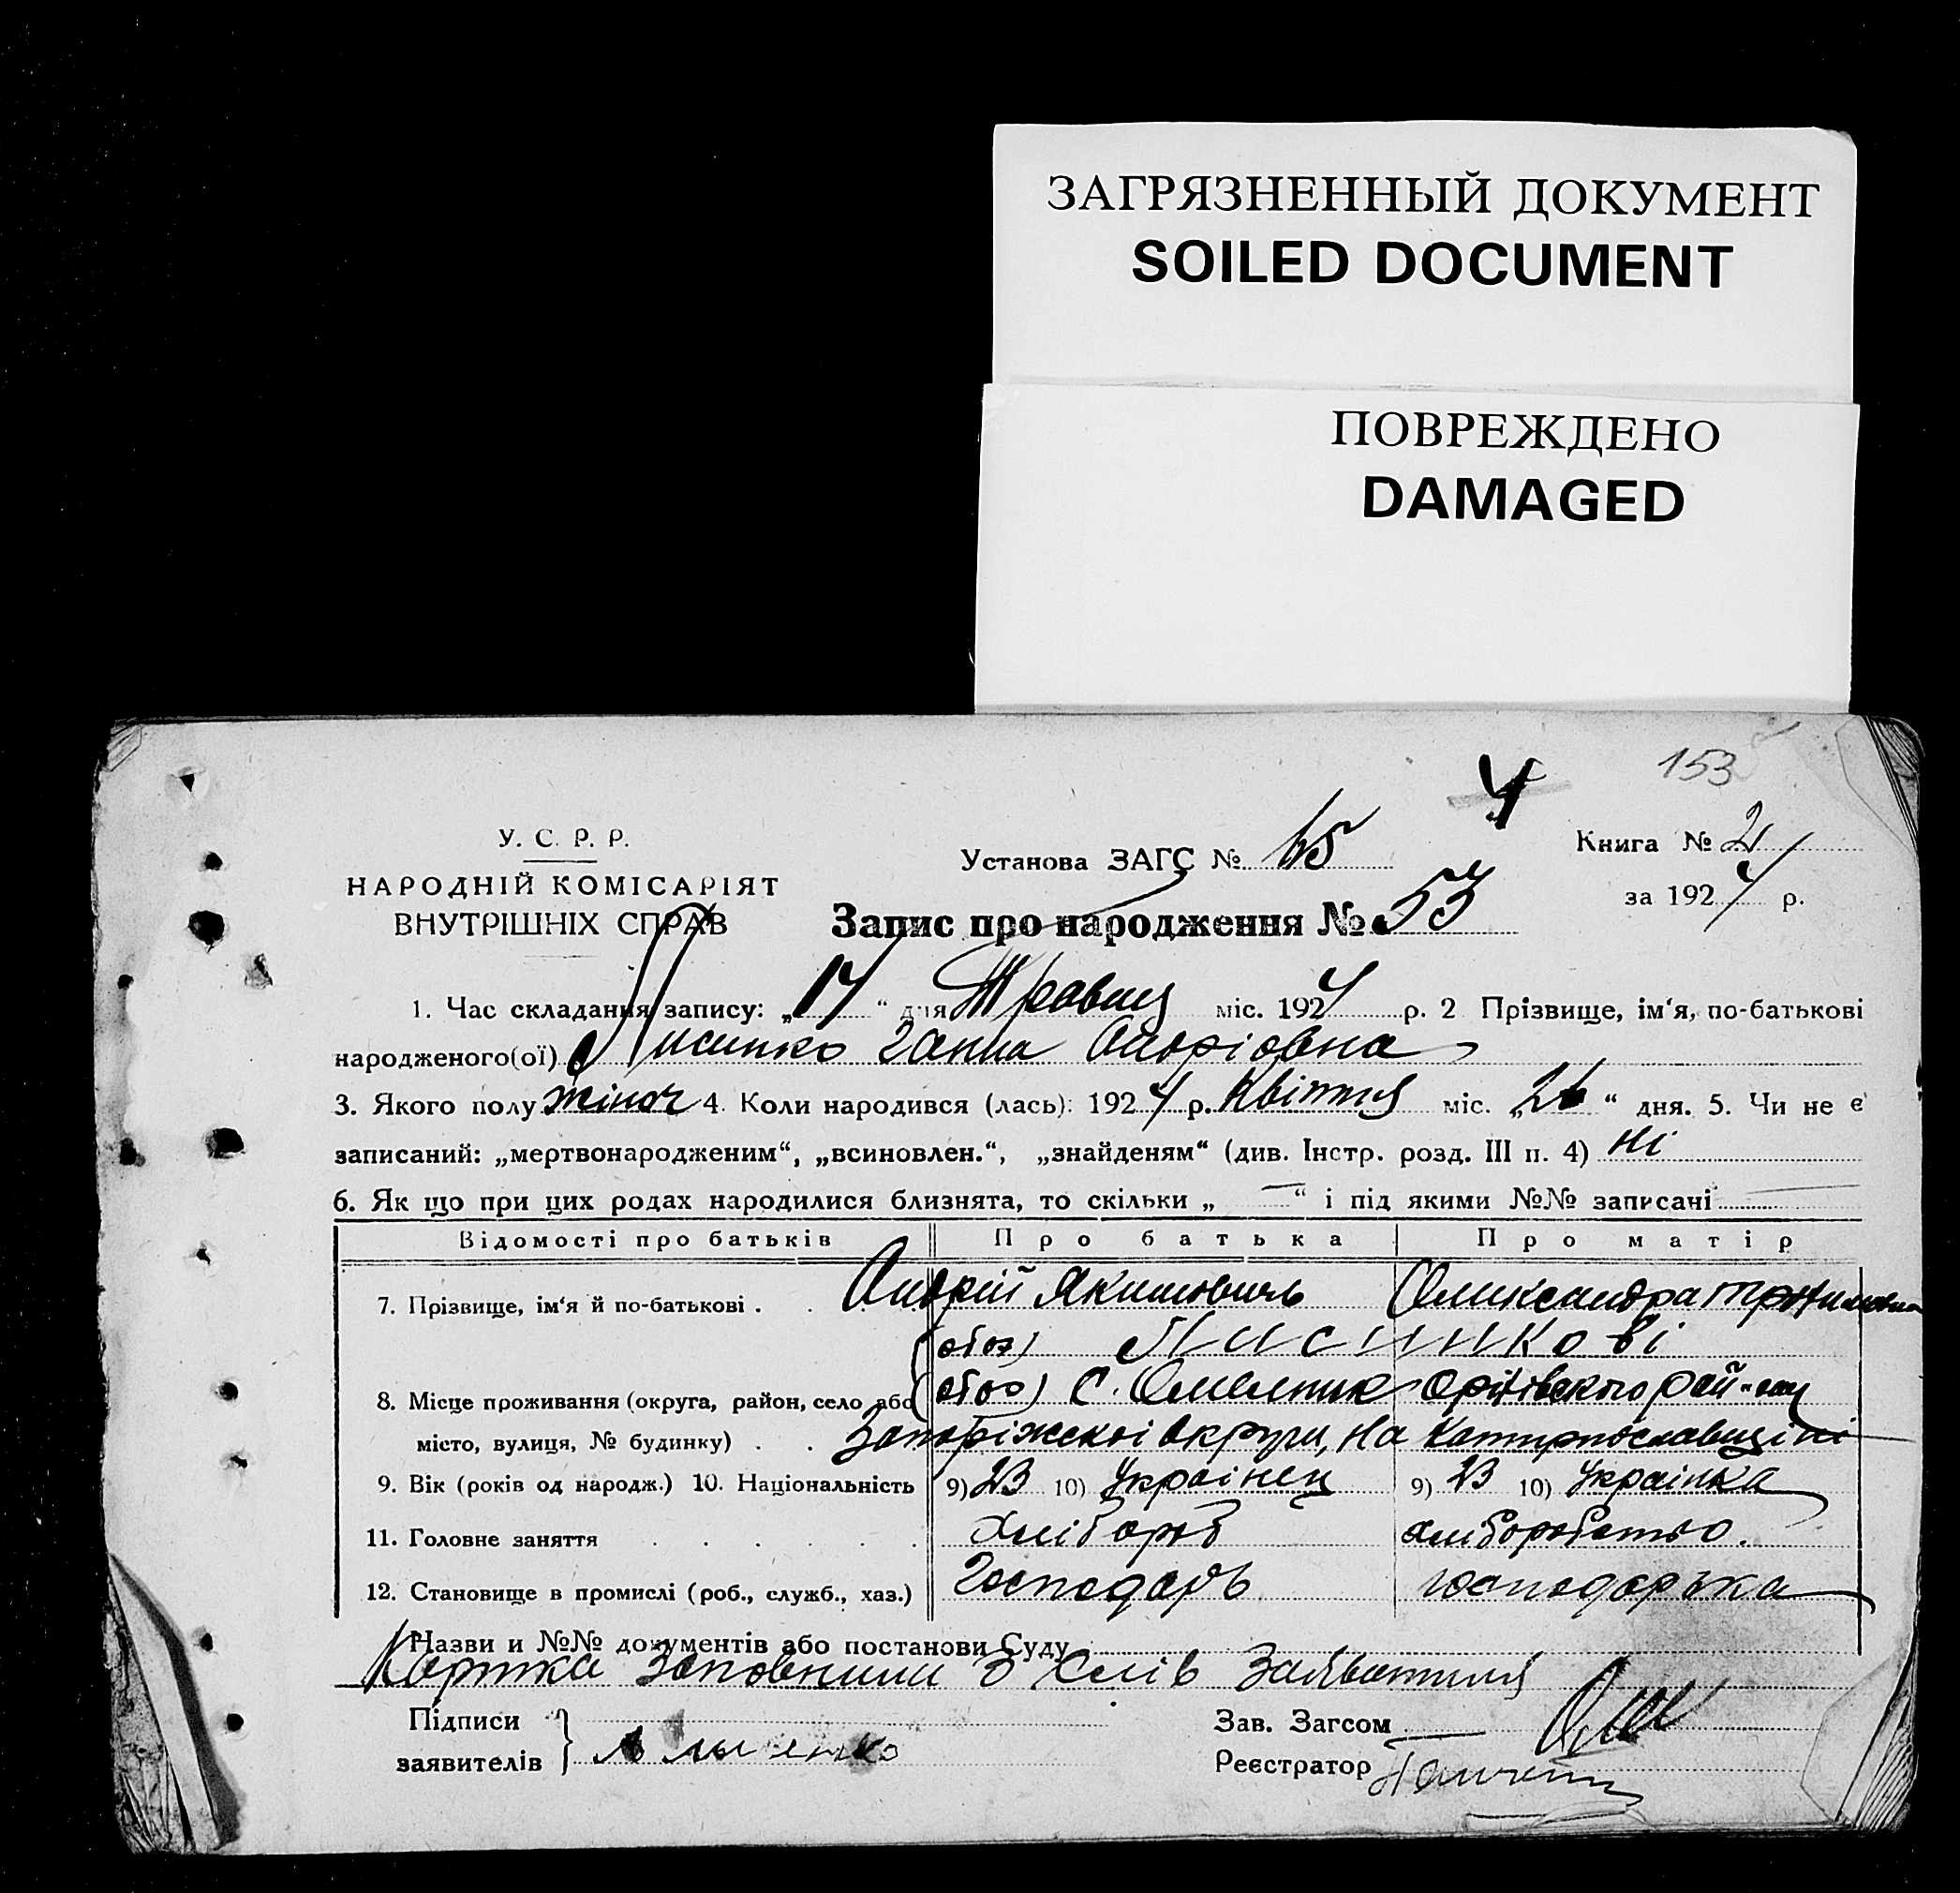 ЗАГРЯЗНЕННЫЙ ДОКУМЕНТ
SOILED DOCUMENT
ПОВРЕЖДЕНО
DAMAGED
153
4
У. С. Р. Р.
НАРОДНІЙ КОМІСАРІЯТ
ВНУТРІШНІХ СПРАВ
Установа ЗАГС №
Книга № 2
за 1924 р.
Запис про народження № 53
1. Час складання запису: „17“ дня Травня міс. 1924 р. 2 Прізвище, ім‘я, по-батькові
народженого(ої) Лисинко Ганна Андріовна
3. Якого полу жіноч 4. Коли народився (лась): 1924 р. Квітня міс. „26“ дня. 5. Чи не є
записаний: „мертвонародженим“, „всиновлен.“, „знайденям“ (див. Інстр. розд. III п. 4) ні
6. Як що при цих родах народилися близнята, то скільки „—“ і під якими №№ записані —
Відомості про батьків Про батька Про матір
7. Прізвище, ім‘я й по-батькові . Андрій Якимовичь Олександра
(обоз) Лисинкові
8. Місце проживання (округа, район, село або (обоз) с. Омельник Оріхівського рай-ону
місто, вулиця, № будинку) . . Запоріжської округи, на Катиринославщині
9. Вік (років од народж.) 10. Національність 9) 23 10) Українец 9) 23 10) Українка
11. Головне заняття хлібороб хліборобство.
12. Становище в промислі (роб., служб., хаз.) Господарь господарька
Назви и №№ документів або постанови Суду
Картка заповнина з слів заявителя
Підписи
заявителів
Зав. Загсом
Реєстратор